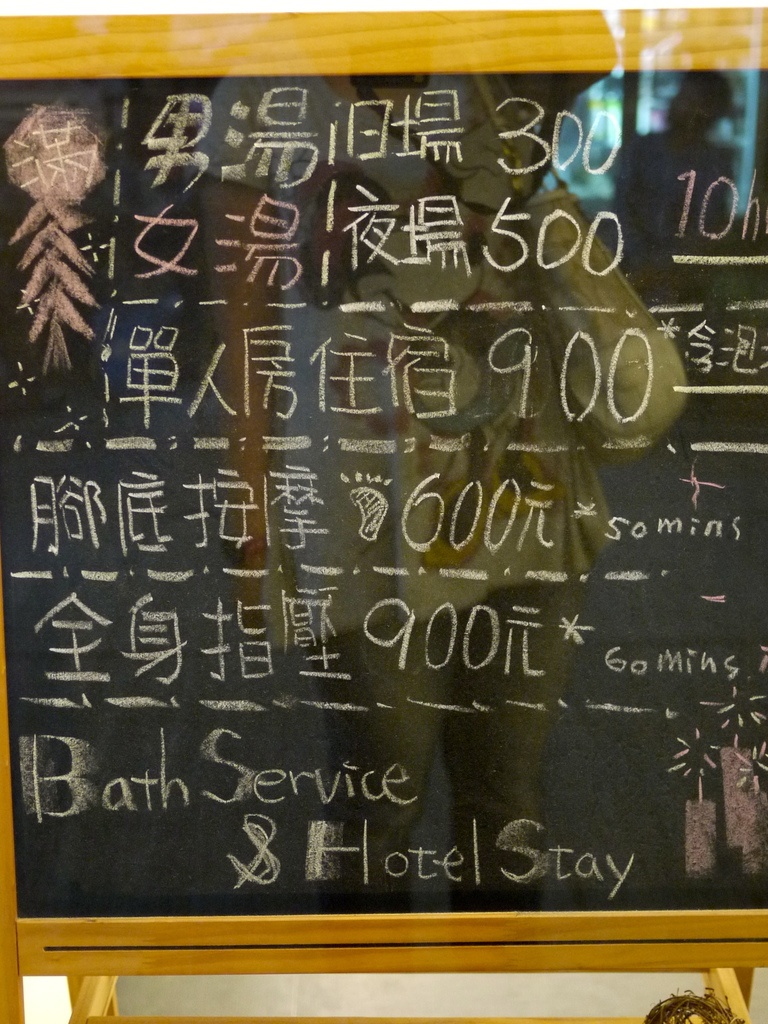 滿
男湯 日場 300
女湯 夜場 500 10h
單人房住宿 900 *含泡
腳底按摩 600元 *50mins
全身指壓 900元* 60mins
Bath Service
& Hotel Stay